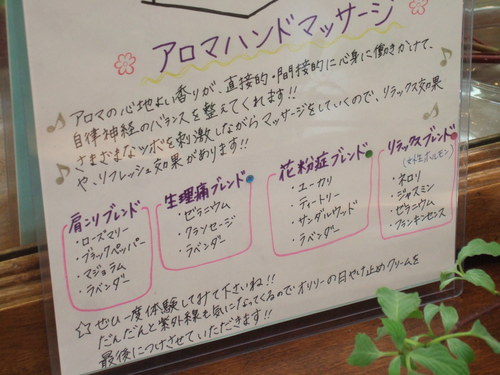 アロマハンドマッサージ
アロマの心地よい香りが、直接的・間接的に心身に働きかけて、
自律神経のバランスを整えてくれます!!
さまざまなツボを刺激しながらマッサージをしていくので、リラックス効果
や、リフレッシュ効果があります!!
肩こりブレンド
・ローズマリー
・ブラックペッパー
・マジョラム
・ラベンダー
生理痛ブレンド
・ゼラニウム
・クラリセージ
・ラベンダー
花粉症ブレンド
・ユーカリ
・ティートリー
・サンダルウッド
・ラベンダー
リラックスブレンド
(女性ホルモン)
・ネロリ
・ジャスミン
・ゼラニウム
・フランキンセンス
☆ぜひ一度体験してみて下さいね!!
だんだんと紫外線も気になってくるのでオリリーの日やけ止めクリームを
最後につけさせていただきます!!